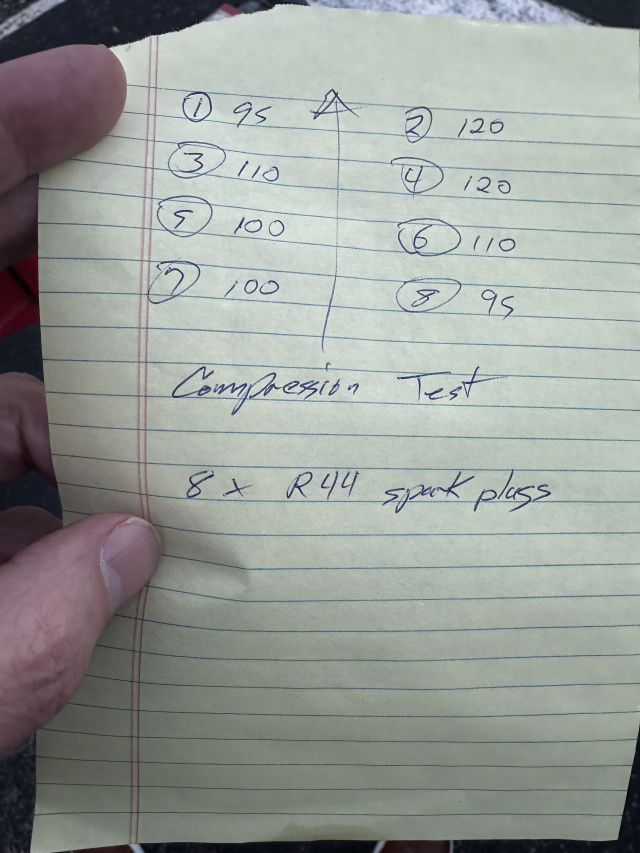 ① 95 ② 120
③ 110 ④ 120
⑤ 100 ⑥ 110
⑦ 100 ⑧ 95
Compression Test
8 x R44 spark plugs